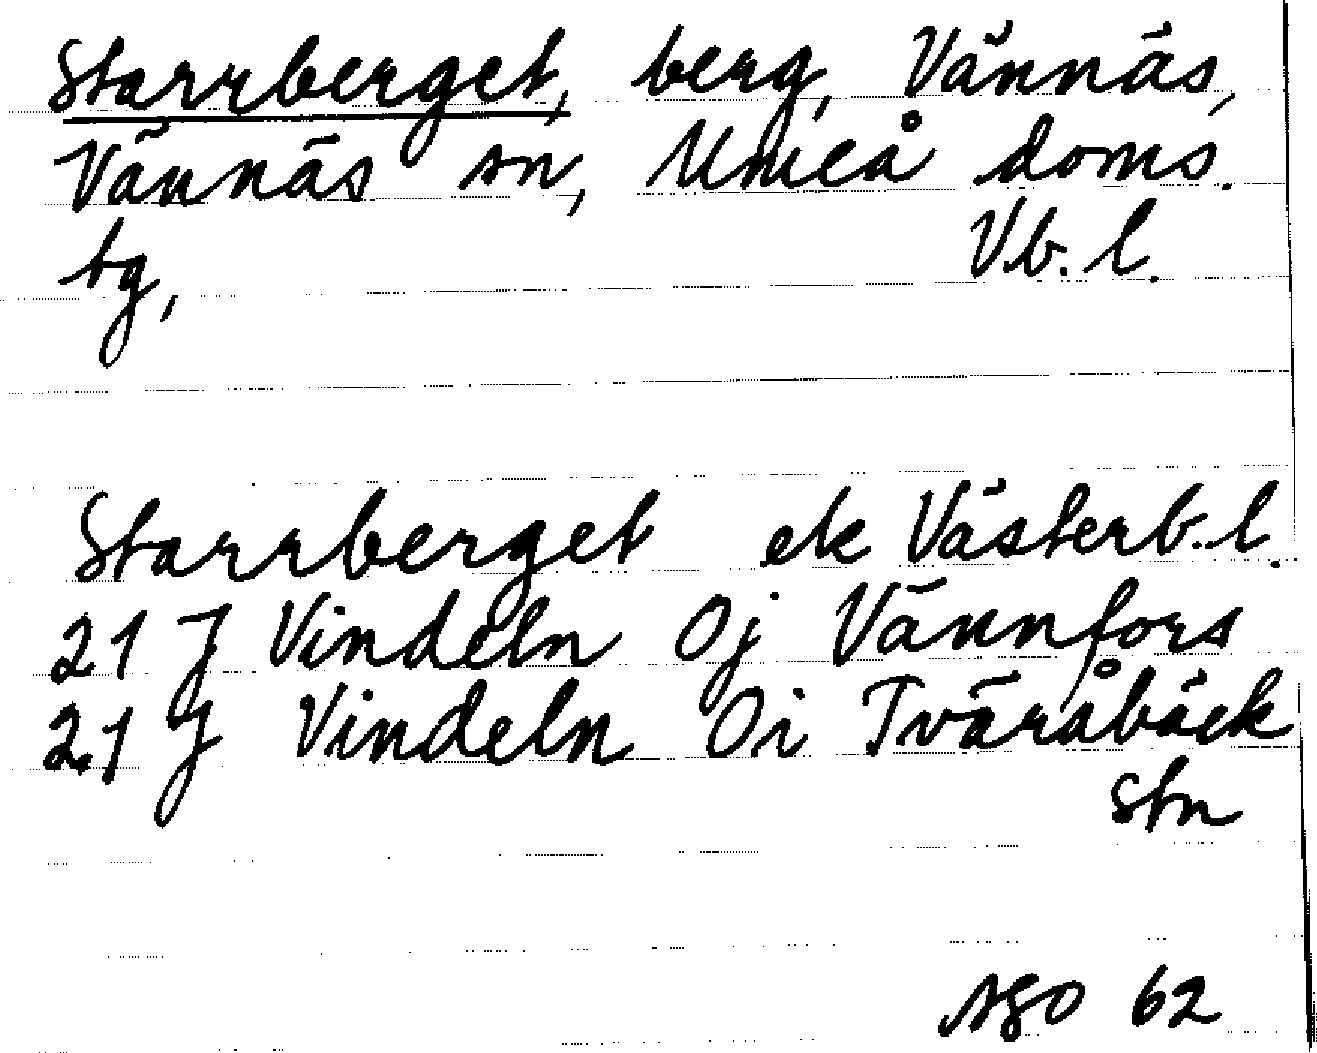 Starrberget, berg, Vännäs,
Vännäs sn, Umeå doms.
tg, Vb. l.
Starrberget ek Västerb. l.
21 J Vindeln Oj Vännfors
21 J Vindeln Oi Tväråbäck
stn
ASO 62